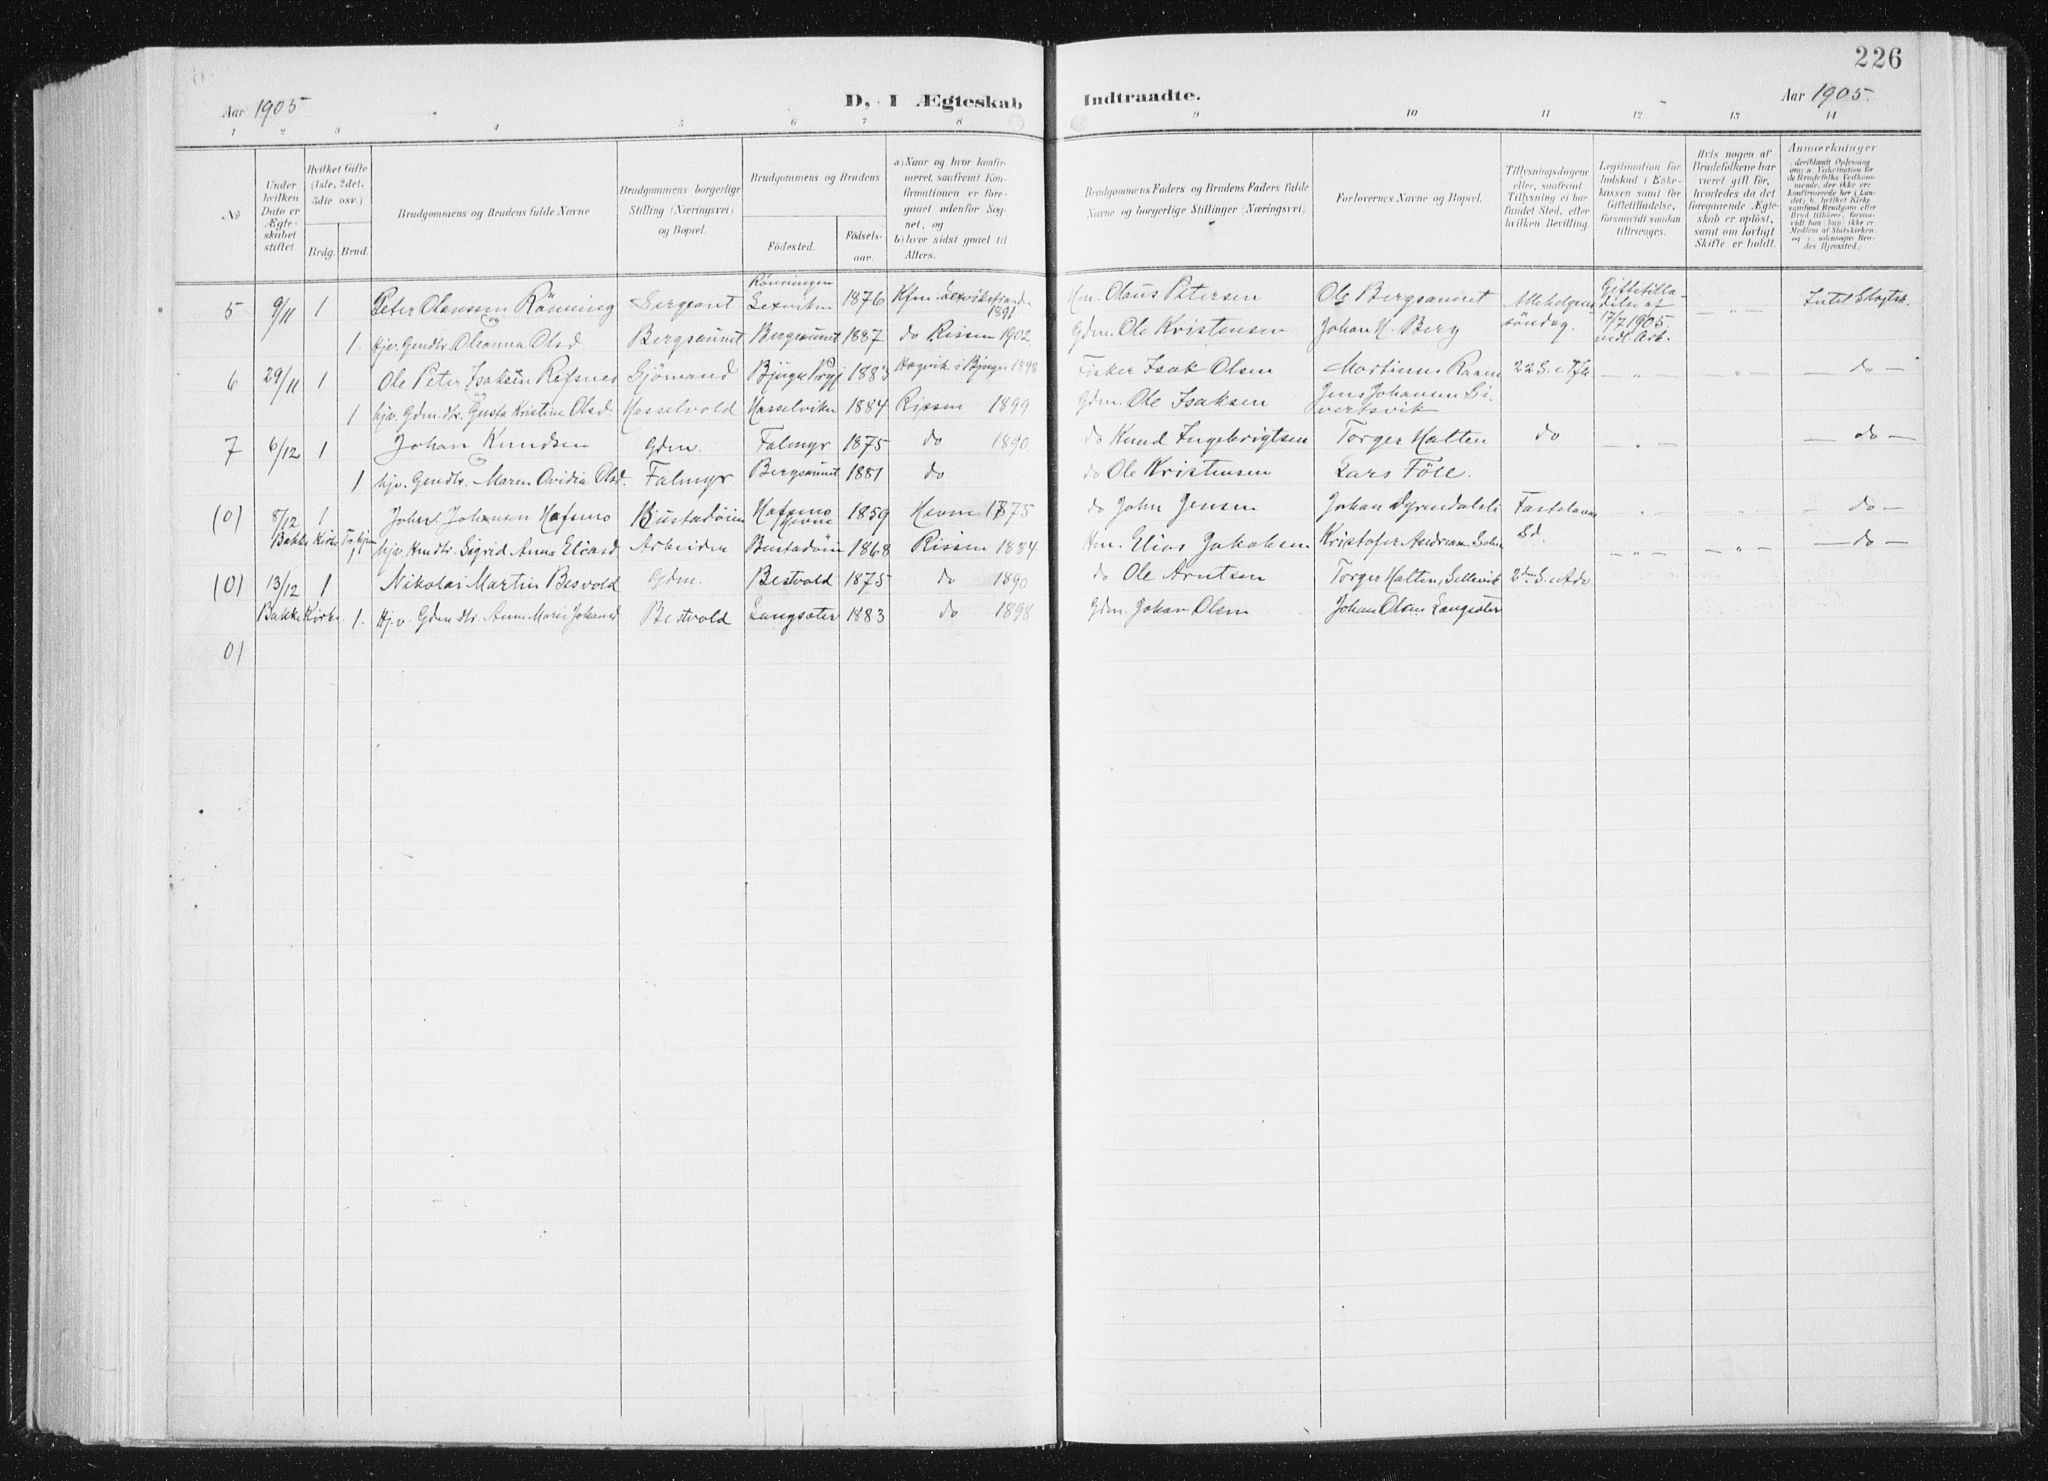 226
Aar 1905
D, I Ægteskab Indtraadte.
Aar 1905.
1 2 3 4 5 6 7 8 9 10 11 12 13 14
No
Under hvilken Dato er Ægteskabet stiftet.
Hvilket Gifte (1ste, 2det, 3die osv.)
Brdg. Brud.
Brudgommens og Brudens fulde Navne
Brudgommens borgerlige Stilling (Næringsvei) og Bopæl.
Brudgommens og Brudens
Födested.
Födsels-aar.
a) Naar og hvor konfirmeret, saafremt Konfirmationen er foregaaet udenfor Sognet, og
b) hvor sidst gaaet til Alters.
Brudgommens Faders og Brudens Faders fulde Navne og borgerlige Stillinger (Næringsvei).
Forlovernes Navne og Bopæl.
Tillysningsdagene eller, saafremt Tillysning ei har fundet Sted, efter hvilken Bevilling.
Legitimation for Indskud i Enkekassen samt for Giftetilladelse, forsaavidt saadan tiltrænges.
Hvis nogen af Brudefolkene har været gift før, hvorledes da det foregaaende Ægteskab er opløst, samt om lovligt Skifte er holdt.
Anmærkninger
5 9/11 1 Peter Olaussen Rönning Sergeant Rönningen Lexviken 1876 Kfm. Lexvikstranden 1891 Hm. Olaus Petersen Ole Bergsaunet Allehelgens söndag. Giftetilladelse af 17/7 1905 vedl. Arb. - " - Intet Slægtsk.
og
1. Hjv. Gmdtr. Oleanna Olsd Bergsaunet Bergsaunet 1887 do Rissen 1902 Gdm. Ole Kristensen Johan H. Berg
6 29/11 1 Ole Peter Isaksen Refsnes Sjömand Bjugn Prgj 1883 Hagvik i Bjugn 1898 Fisker Isak Olsen Martinus Raaen 22 S. e Tfh - " - - " - - do -
og
1 hjv. Gdm. dtr. Gusta Kristine Olsd. Hasselvold Hasselviken 1884 Rissen 1899 Gdm. Ole Isaksen Jens Johansen Sivertsvik
7 6/12 1 Johan Knudsen Gdm. Falmyr 1875 do 1890 do Knud Ingebrigtsen Torger Hatten do - " - - do -
og
1 hjv. Gmdtr. Maren Ovidia Olsd. Falmyr Bergsaunet 1881 do do Ole Kristensen Lars Föll.
(0) 8/12 1 John Johansen Hafsmo Bustadöien Hafsmo Hevne 1859 Hevne 1875 do John Jensen Johan Dyrendalsli Fastelavns - " - - " - - do -
Bakke Kirke Tr.hjem 1 hjv. Hmdtr. Sigrid Anna Eliasd. Arbeider Bustadöien 1868 Rissen 1884 Hm. Elias Jakobsen Kristofer Andreas Solem Sd. - " - - " - - do -
(0) 13/12 1 Nikolai Martin Besvold Gdm. Bestvold 1875 do 1890 do Ole Arntsen Torger Hatten, Sellevik 2den S. e Adv
Bakke Kirke 1. Hjv. Gdm dtr. Anne Marie Johansd Bestvold Langsæter 1883 do 1898 Gdm. Johan Olsen Johan Olsen Langsæter
0)